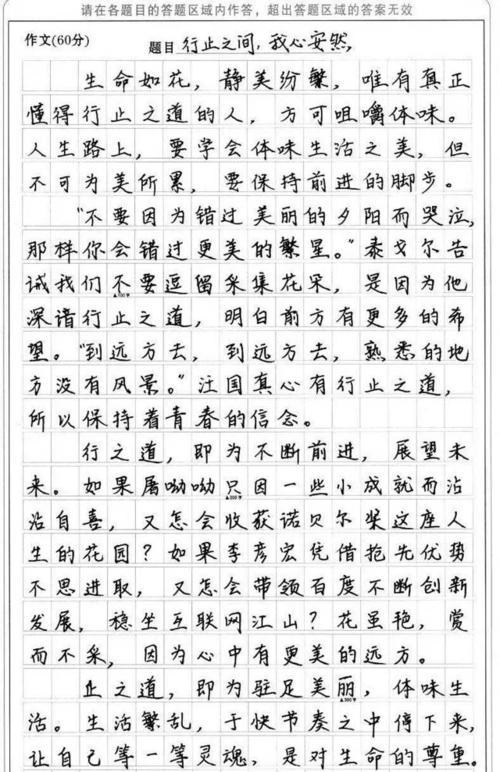 请在各题目的答题区域内作答，超出答题区域的答案无效
作文(60分)
题目 行止之间，我心安然
生命如花，静美纷繁，唯有真正
懂得行止之道的人，方可咀嚼体味。
人生路上，要学会体味生活之美，但
不可为美所累，要保持前进的脚步。
"不要因为错过美丽的夕阳而哭泣，
那样你会错过更美的繁星。"泰戈尔告
诫我们不要逗留采集花朵，是因为他
深谙行止之道，明白前方有更多的希
望。"到远方去，到远方去，熟悉的地
方没有风景。"汪国真心有行止之道，
所以保持着青春的信念。
行之道，即为不断前进，展望未
来。如果屠呦呦只因一些小成就而沾
沾自喜，又怎会收获诺贝尔奖这座人
生的花园？如果李彦宏凭借抢先优势
不思进取，又怎会带领百度不断创新
发展，稳坐互联网江山？花虽艳，赏
而不采，因为心中有更美的远方。
止之道，即为驻足美丽，体味生
活。生活繁乱，于快节奏之中停下来，
让自己等一等灵魂，是对生命的尊重。